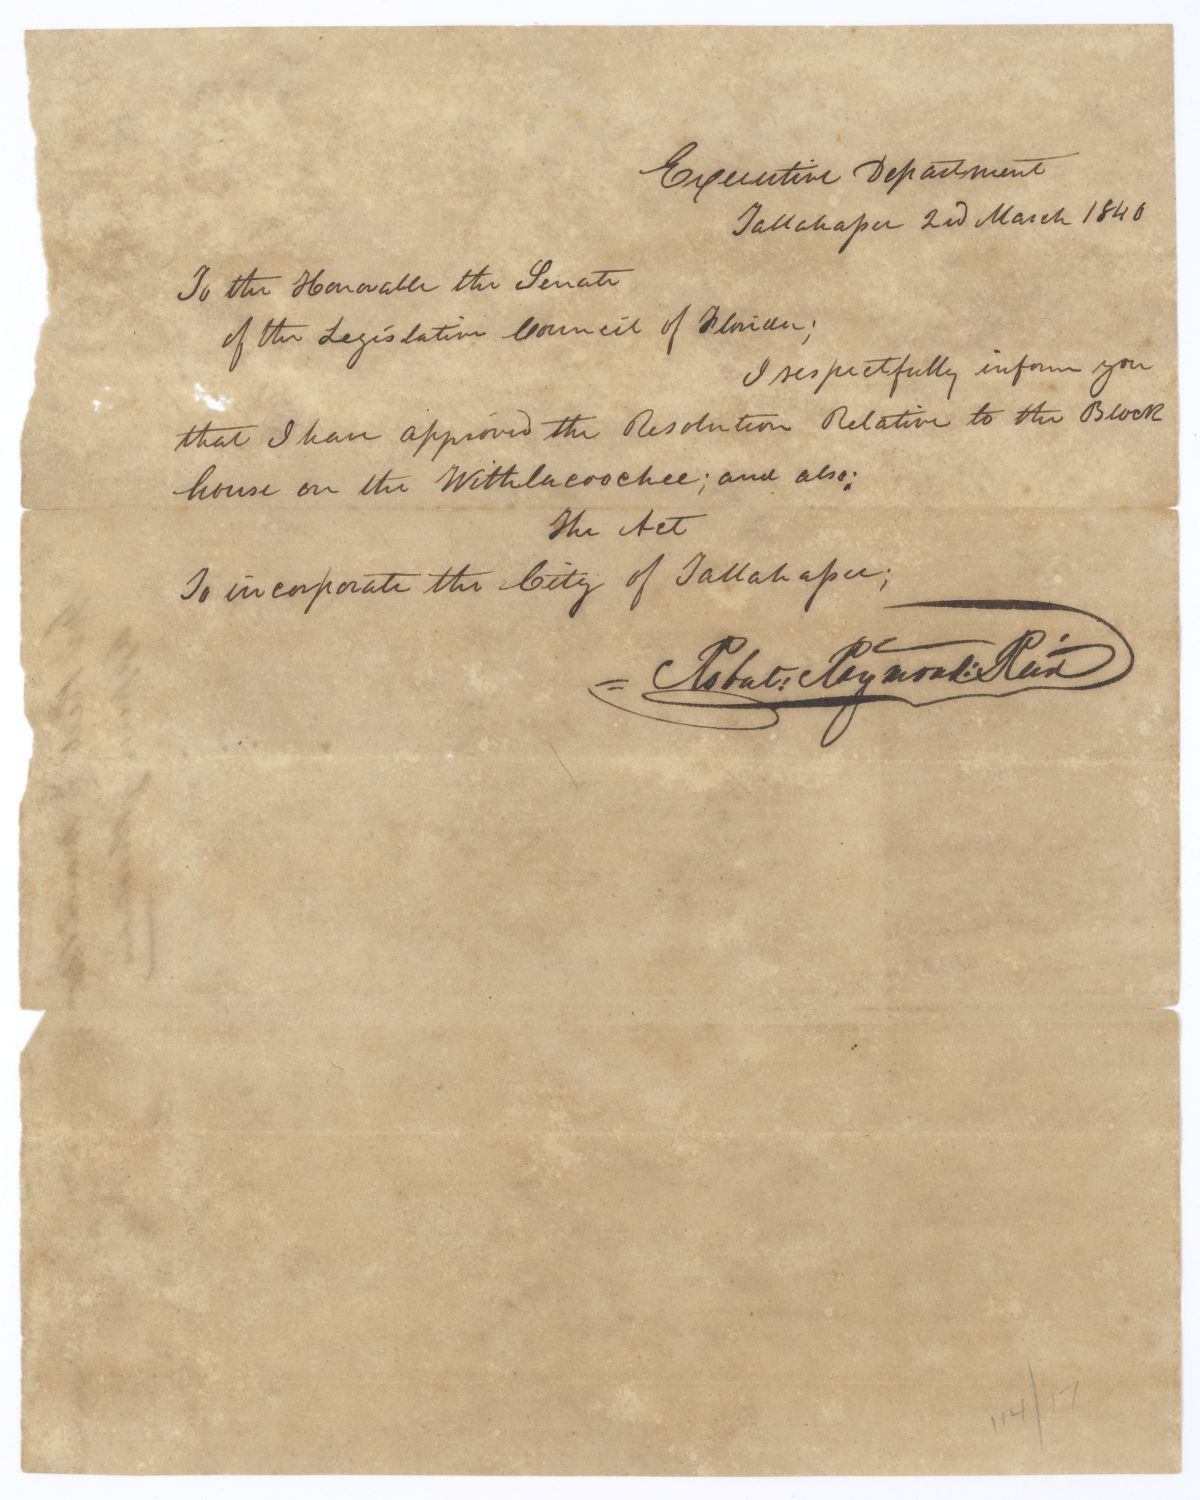 Executive Department
Tallahassee 2nd March 1840
To the Honorable the Senate
of the Legislative Council of Florida;
I respectfully inform you
that I have approved the Resolution Relative to the Block
house on the Withlacoochee; and also;
The Act
To incorporate the City of Tallahassee;
Robert: Raymond: Reid
114/17